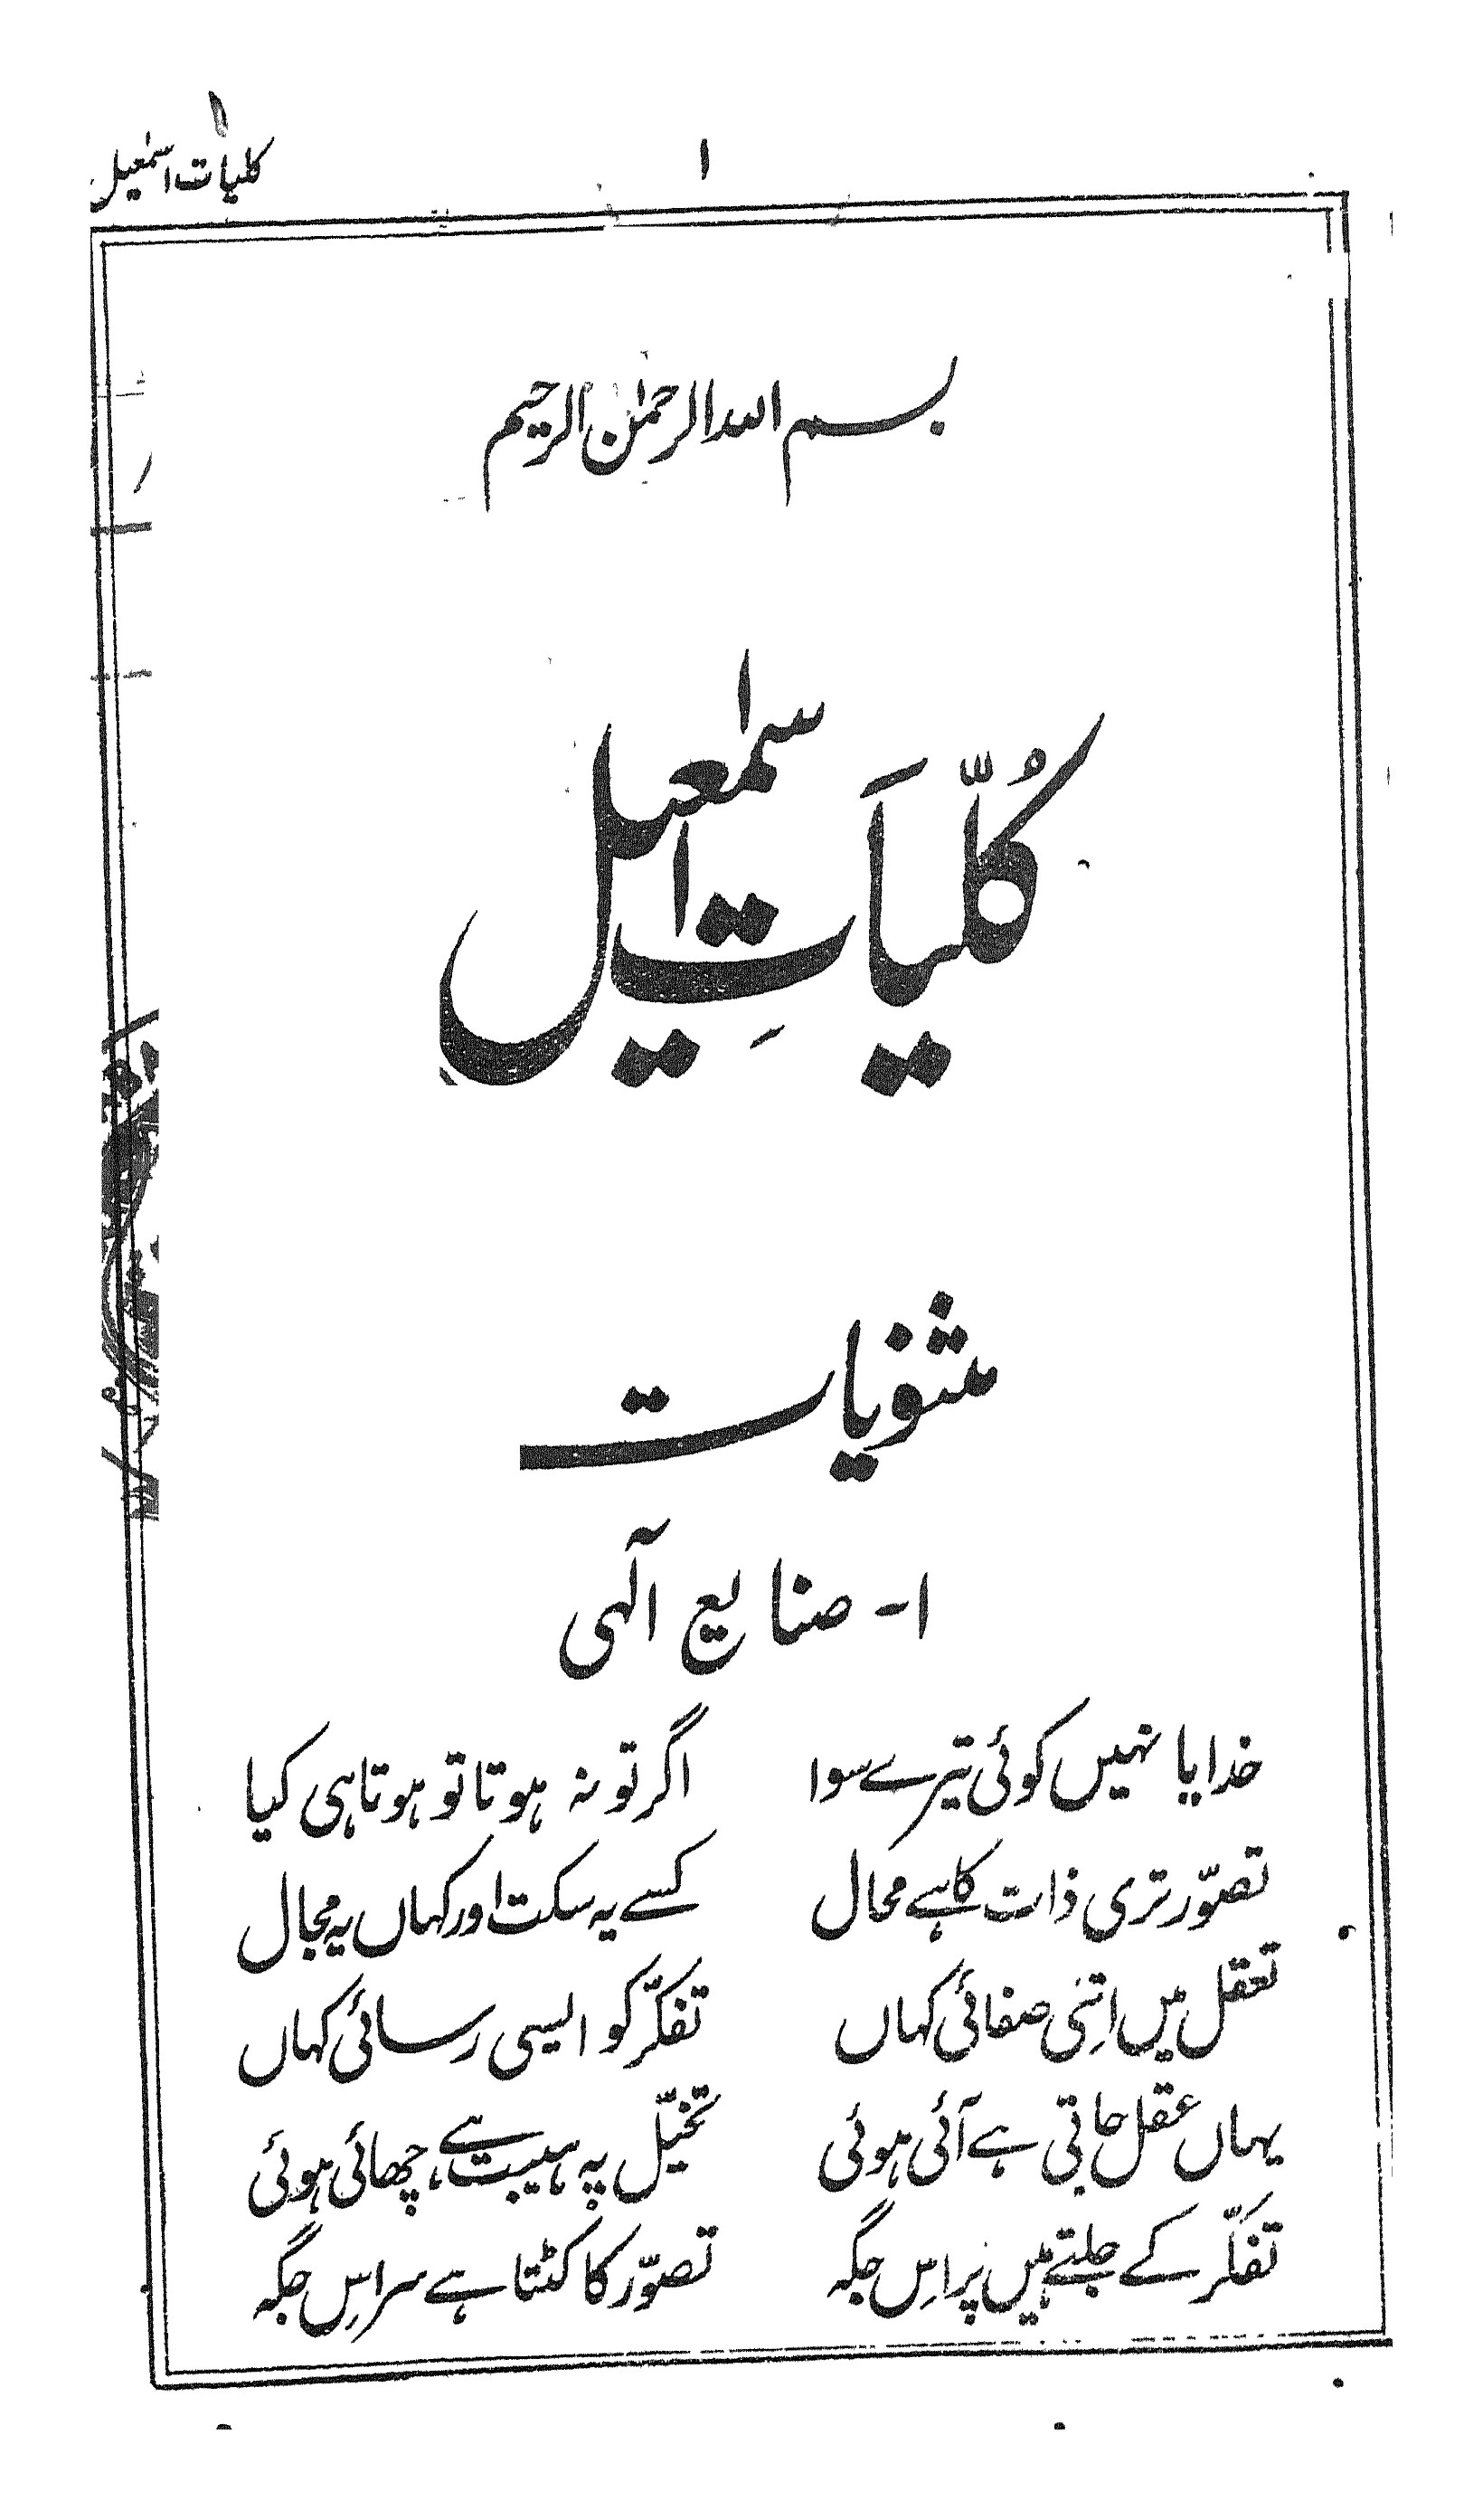 کلیات اسمٰعیل
۱
بسم اللہ الرحمٰن الرحیم
کُلّیاَتِ اسمٰعیل
مثنویات
۱- صنایع آلٰہی
خدایا نہیں کوئی تیرے سوا اگر تو نہ ہوتا تو ہوتا ہی کیا
تصوّر تری ذات کا ہے محال کسے یہ سکت اور کہاں یہ مجال
تعقل میں اِتنی صفائی کہاں تفکّر کو ایسی رسائی کہاں
یہاں عقل جاتی ہے آئی ہوئی تخیّل پہ ہیبت ہے چھائی ہوئی
تفکّر کے جلتے ہیں پر اِس جگہ تصوّر کا کٹتا ہے سر اِس جگہ